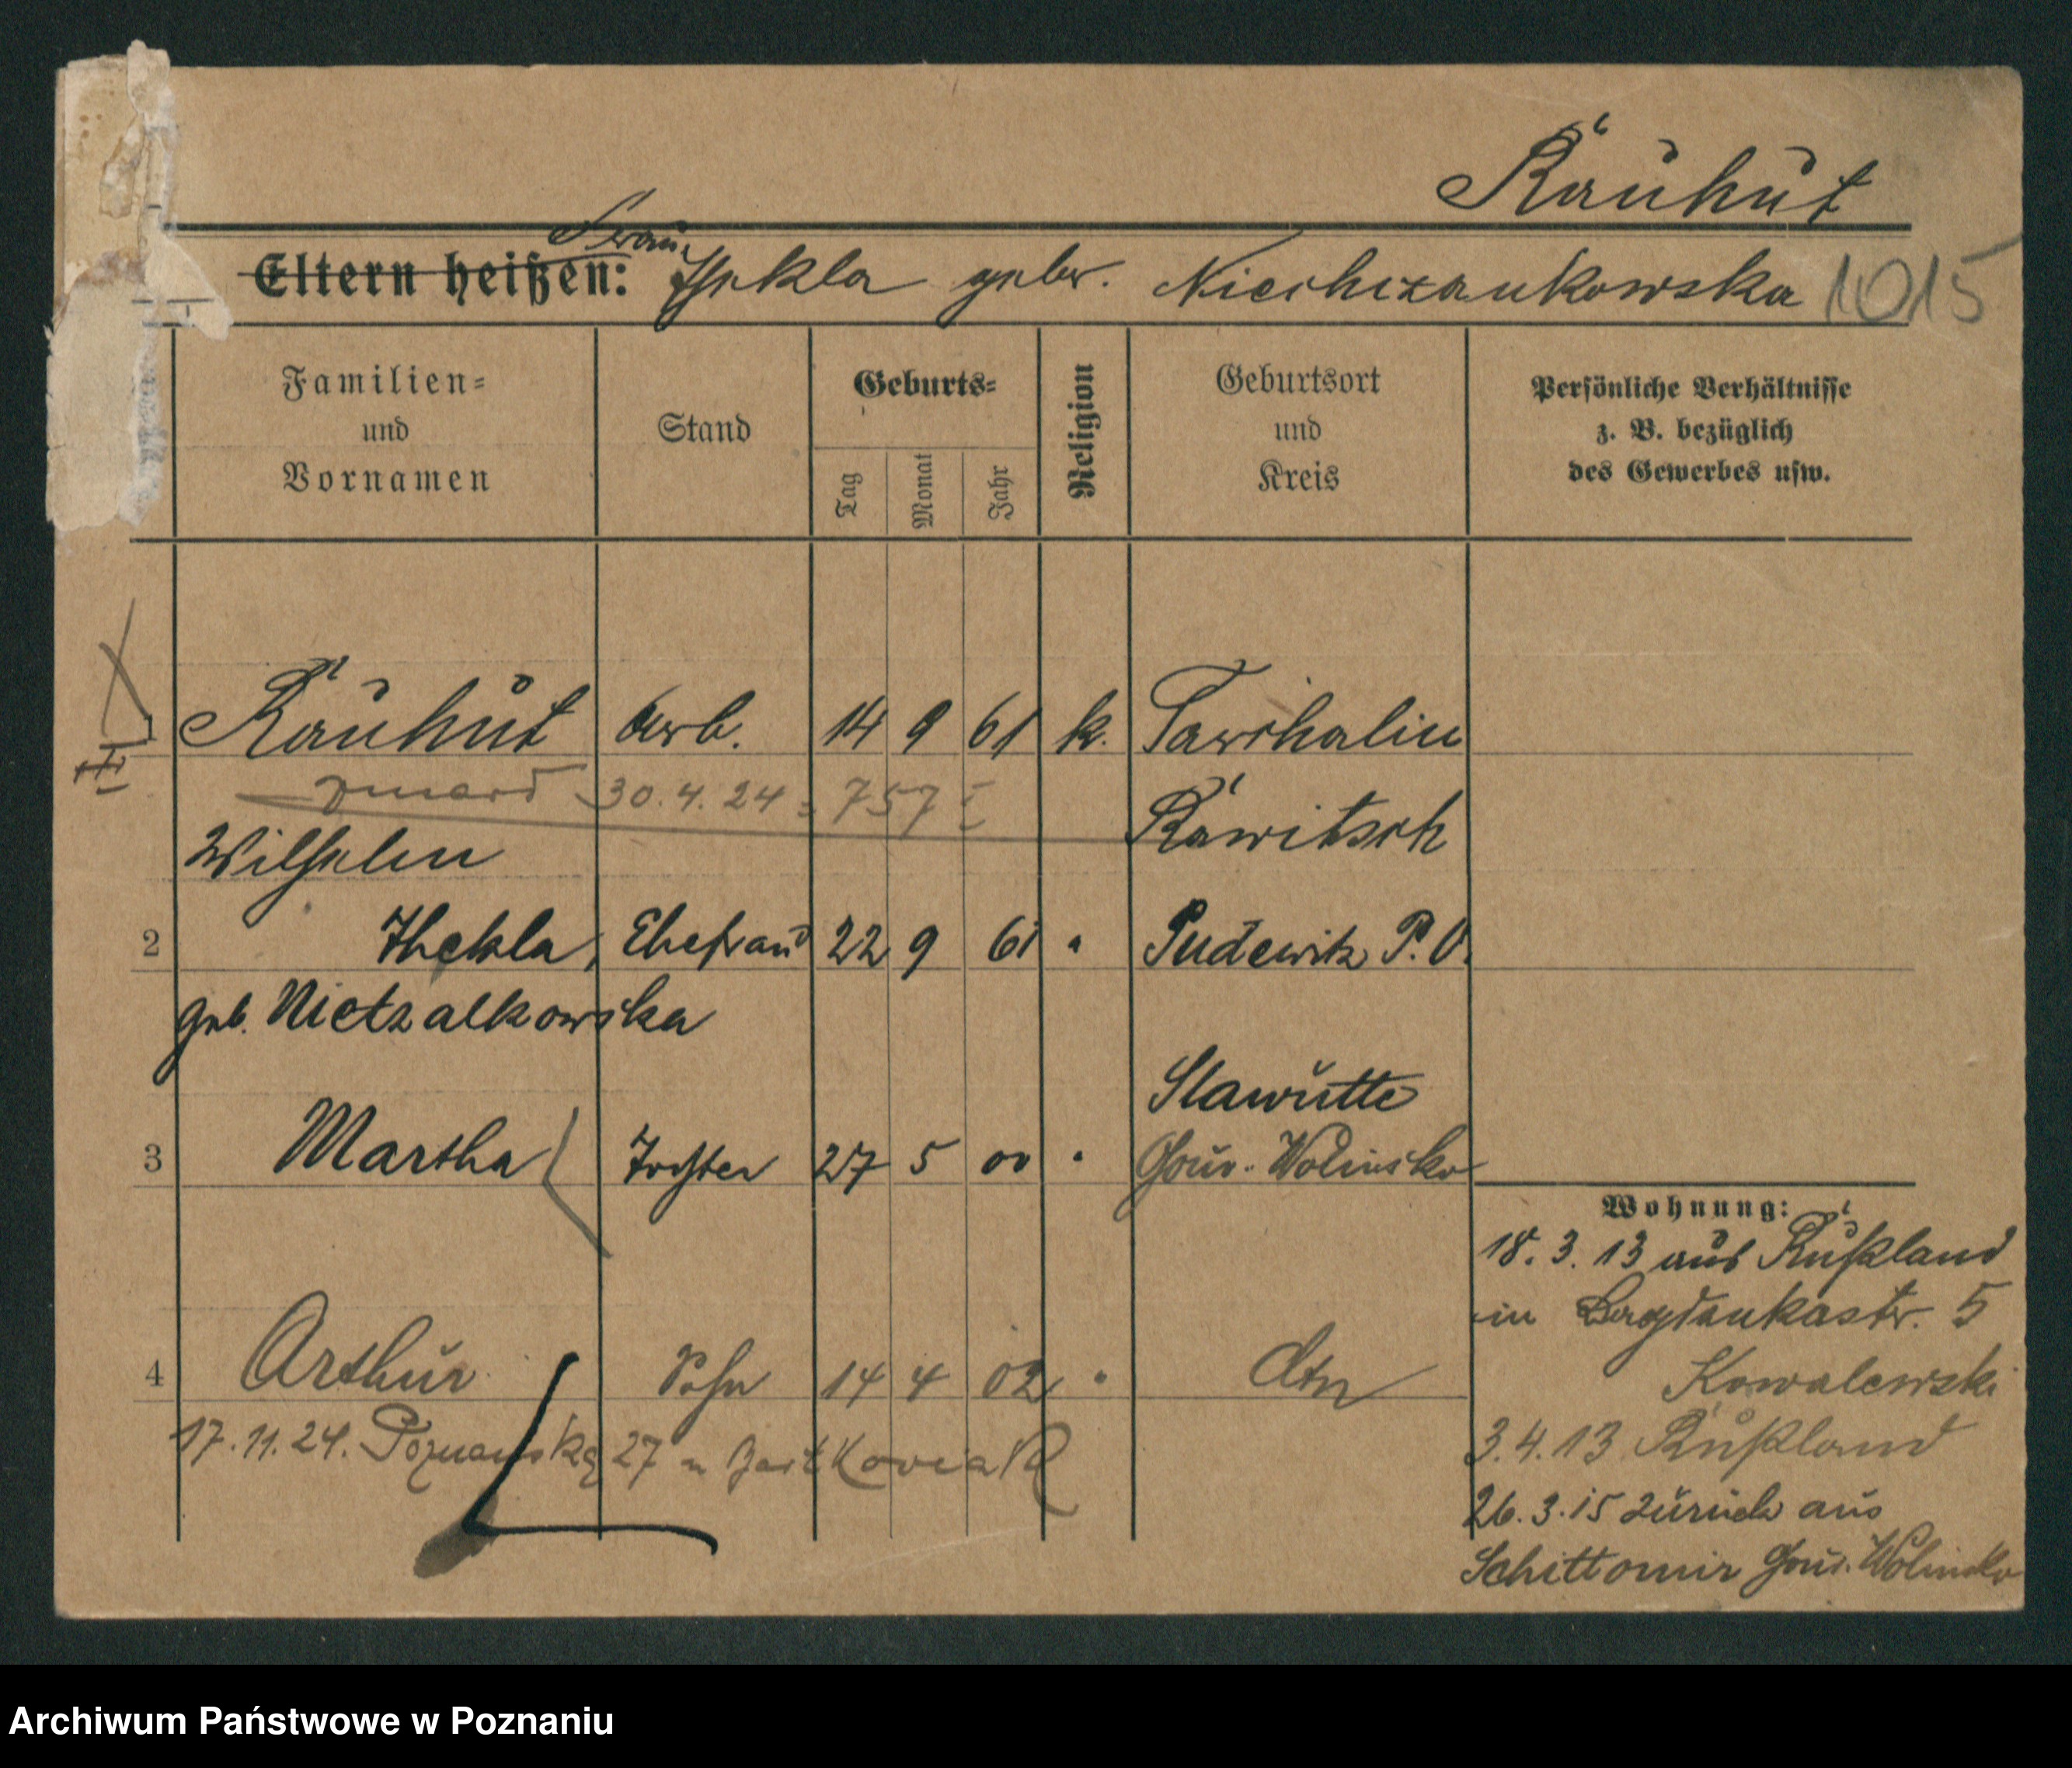 Rauhut
Frau
Eltern heißen: Thekla gebor. Niechczankowska 1015
Familien-
und
Vornamen
Stand
Geburts-
Tag
Monat
Jahr
Religion
Geburtsort
und
Kreis
Persönliche Verhältnisse
z. B. bezüglich
des Gewerbes usw.
1 Rauhut Arb. 14 9 61 k. Tarchalin
zmarł 30.4.24 = 757 I
Wilhelm Rawitsch
2 Thekla, Ehefrau 22 9 61 " Pudewitz P.O.
geb. Nietzalkowska
Slawutte
3 Martha Tochter 27 5 00 " Gouv. Wolinsko
Wohnung:
18.3.13 aus Rußland
in Bogdankastr. 5
Kowalewski
4 Arthur Sohn 14 4 02 " dto
3.4.13 Rußland
17.11.24. Poznańska 27 u Bartkowiak
26.3.15 zurück aus
Schittomir Gouv. Wolinsko
Archiwum Państwowe w Poznaniu